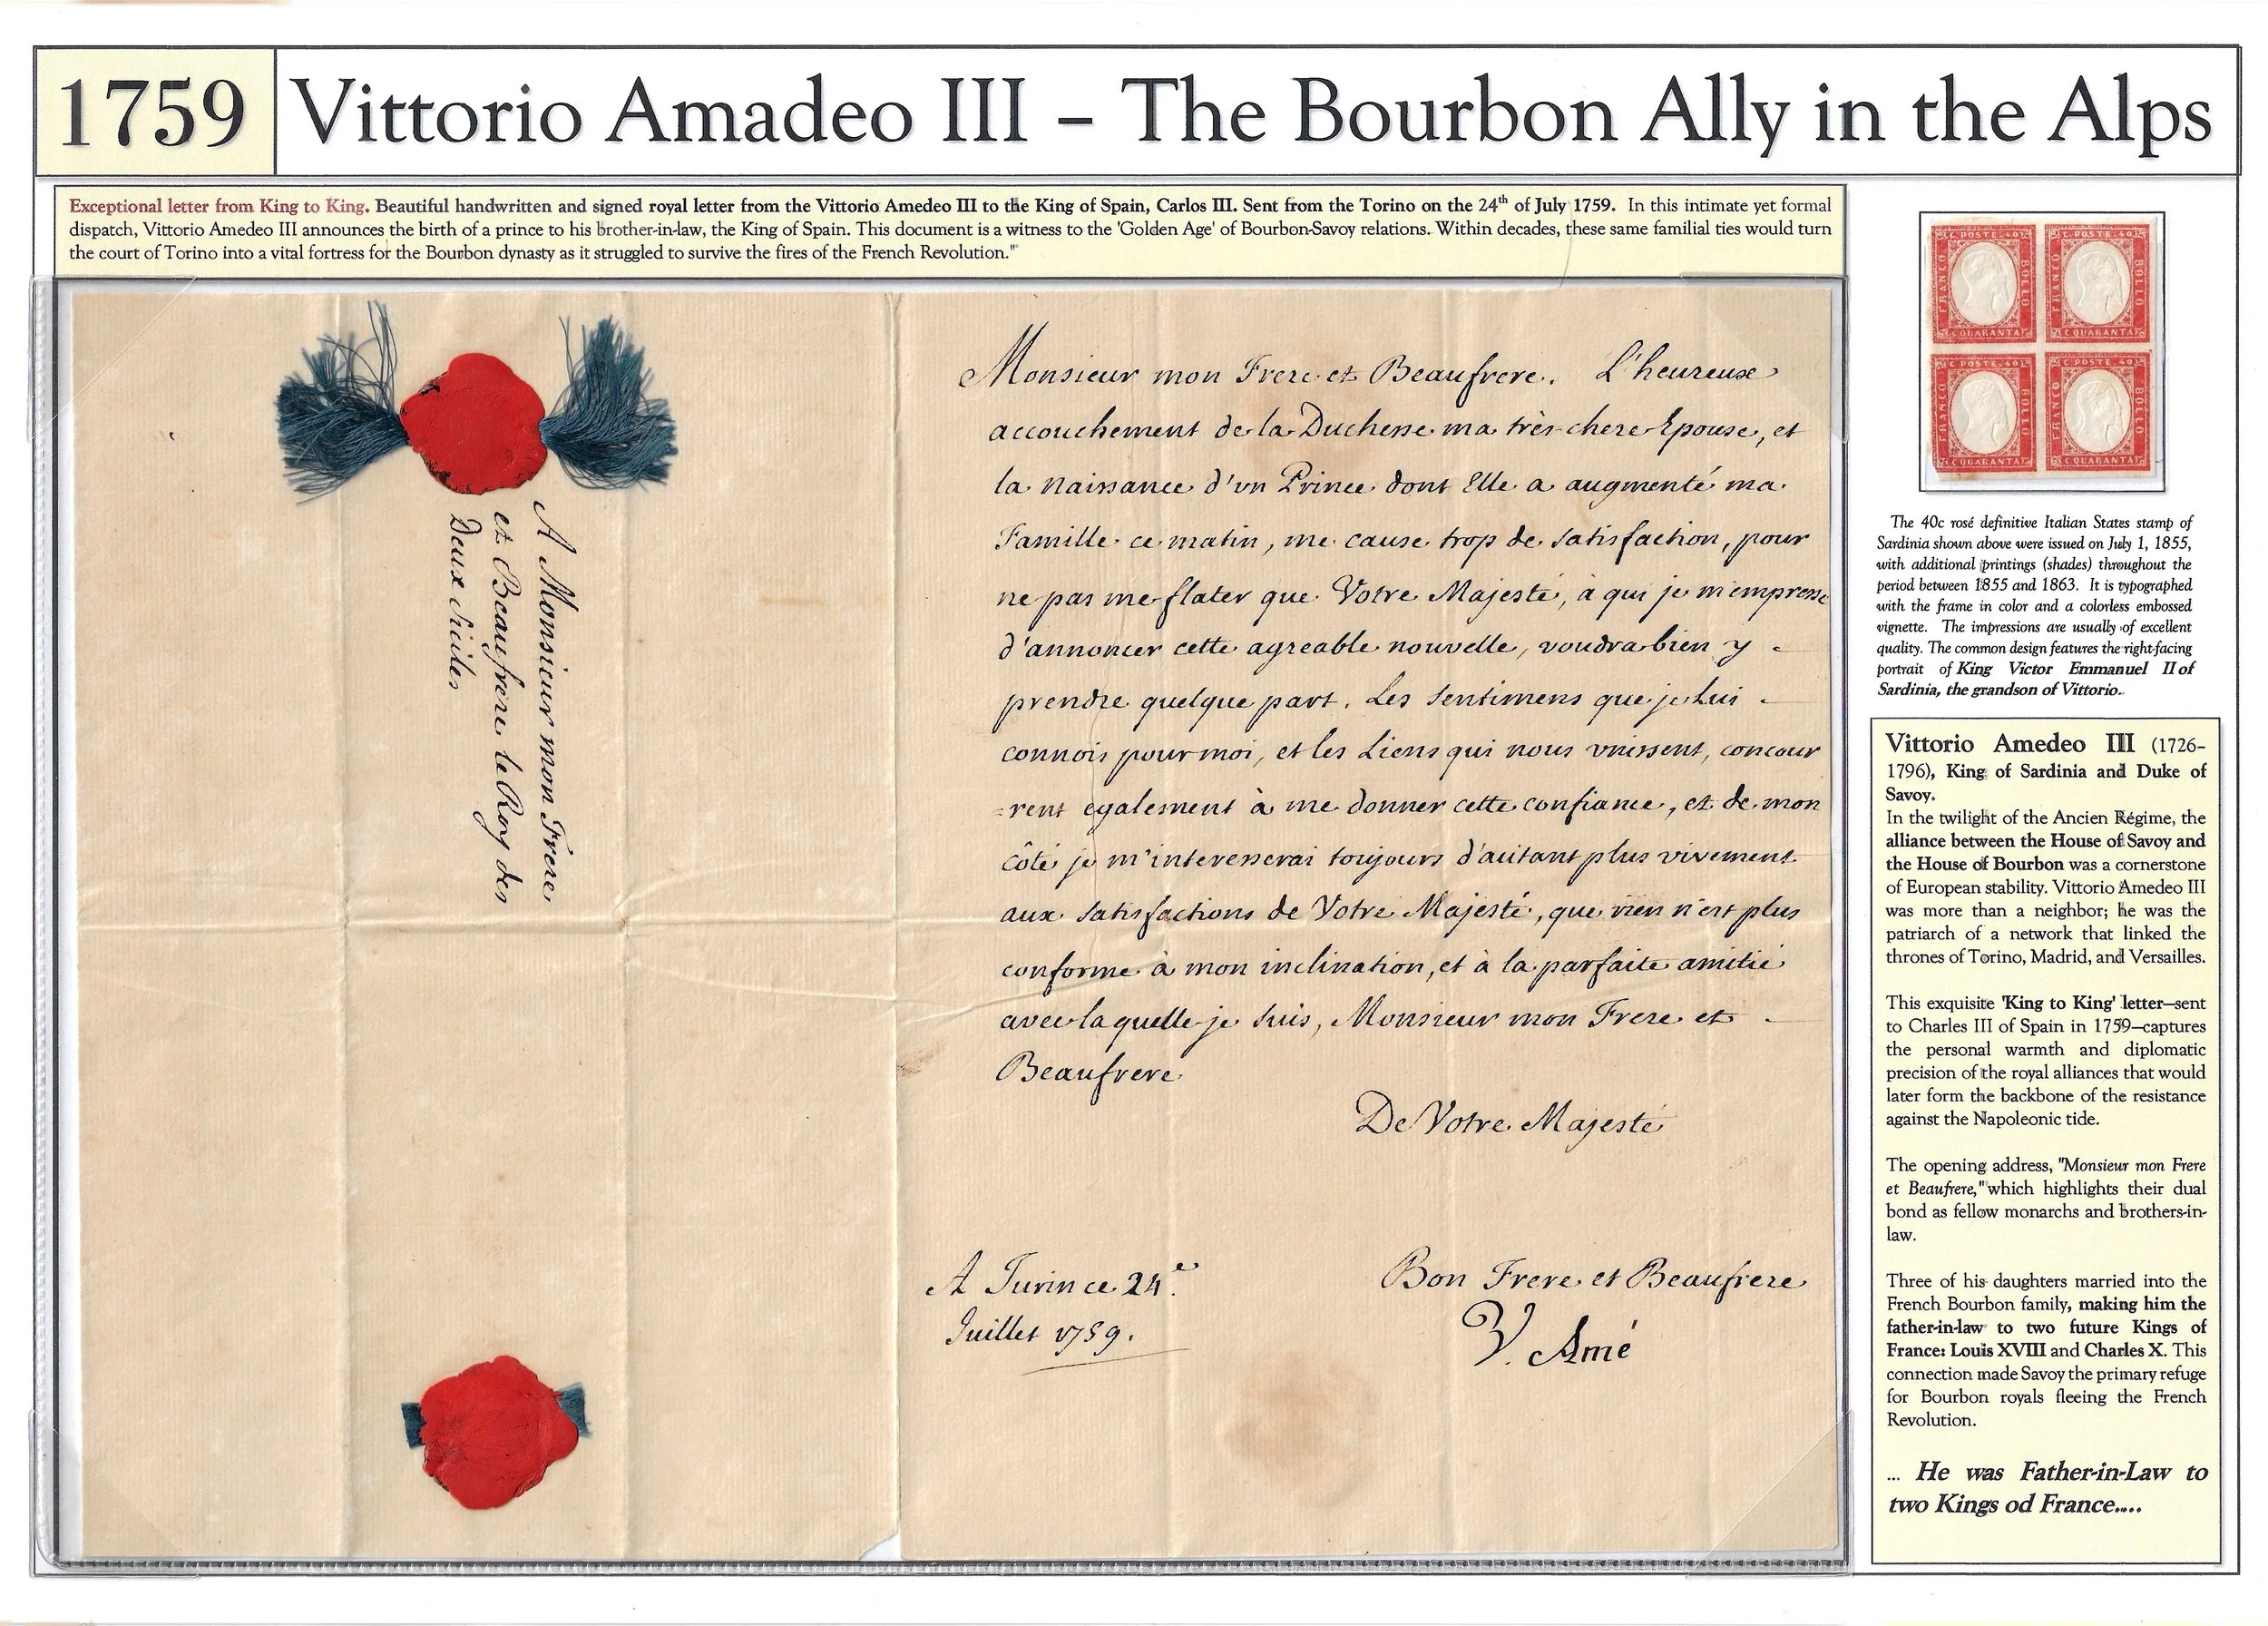 1759
Vittorio Amadeo III – The Bourbon Ally in the Alps
Exceptional letter from King to King. Beautiful handwritten and signed royal letter from the Vittorio Amedeo III to the King of Spain, Carlos III. Sent from the Torino on the 24th of July 1759. In this intimate yet formal
dispatch, Vittorio Amedeo III announces the birth of a prince to his brother-in-law, the King of Spain. This document is a witness to the 'Golden Age' of Bourbon-Savoy relations. Within decades, these same familial ties would turn
the court of Torino into a vital fortress for the Bourbon dynasty as it struggled to survive the fires of the French Revolution."
A Monsieur mon Frere,
et Beaufrere le Roy des
Deux Siciles
Monsieur mon Frere et Beaufrere. L'heureuse
accouchement de la Duchesse ma très chere Epouse, et
la naissance d'un Prince dont Elle a augmenté ma
Famille ce matin, me cause trop de satisfaction, pour
ne pas me flater que Votre Majesté, à qui je m'empresse
d'annoncer cette agreable nouvelle, voudra bien y
prendre quelque part. Les sentimens que je Lui
connois pour moi, et les Liens qui nous unissent, concour
=rent egalement à me donner cette confiance, et de mon
côté je m'interesserai toujours d'autant plus vivement
aux satisfactions de Votre Majesté, que rien n'est plus
conforme à mon inclination, et à la parfaite amitié
avec laquelle je suis, Monsieur mon Frere et
Beaufrere
De Votre Majesté
A Turin ce 24.e
Juillet 1759.
Bon Frere et Beaufrere
V. Amé
C. POSTE. 40
FRANCO
BOLLO
C. QUARANTA
C. POSTE. 40
FRANCO
BOLLO
C. QUARANTA
C. POSTE. 40
FRANCO
BOLLO
C. QUARANTA
C. POSTE. 40
FRANCO
BOLLO
C. QUARANTA
The 40c rosé definitive Italian States stamp of
Sardinia shown above were issued on July 1, 1855,
with additional printings (shades) throughout the
period between 1855 and 1863. It is typographed
with the frame in color and a colorless embossed
vignette. The impressions are usually of excellent
quality. The common design features the right-facing
portrait of King Victor Emmanuel II of
Sardinia, the grandson of Vittorio.
Vittorio Amedeo III (1726-
1796), King of Sardinia and Duke of
Savoy.
In the twilight of the Ancien Régime, the
alliance between the House of Savoy and
the House of Bourbon was a cornerstone
of European stability. Vittorio Amedeo III
was more than a neighbor; he was the
patriarch of a network that linked the
thrones of Torino, Madrid, and Versailles.
This exquisite 'King to King' letter—sent
to Charles III of Spain in 1759—captures
the personal warmth and diplomatic
precision of the royal alliances that would
later form the backbone of the resistance
against the Napoleonic tide.
The opening address, "Monsieur mon Frere
et Beaufrere," which highlights their dual
bond as fellow monarchs and brothers-in-
law.
Three of his daughters married into the
French Bourbon family, making him the
father-in-law to two future Kings of
France: Louis XVIII and Charles X. This
connection made Savoy the primary refuge
for Bourbon royals fleeing the French
Revolution.
... He was Father-in-Law to
two Kings od France....